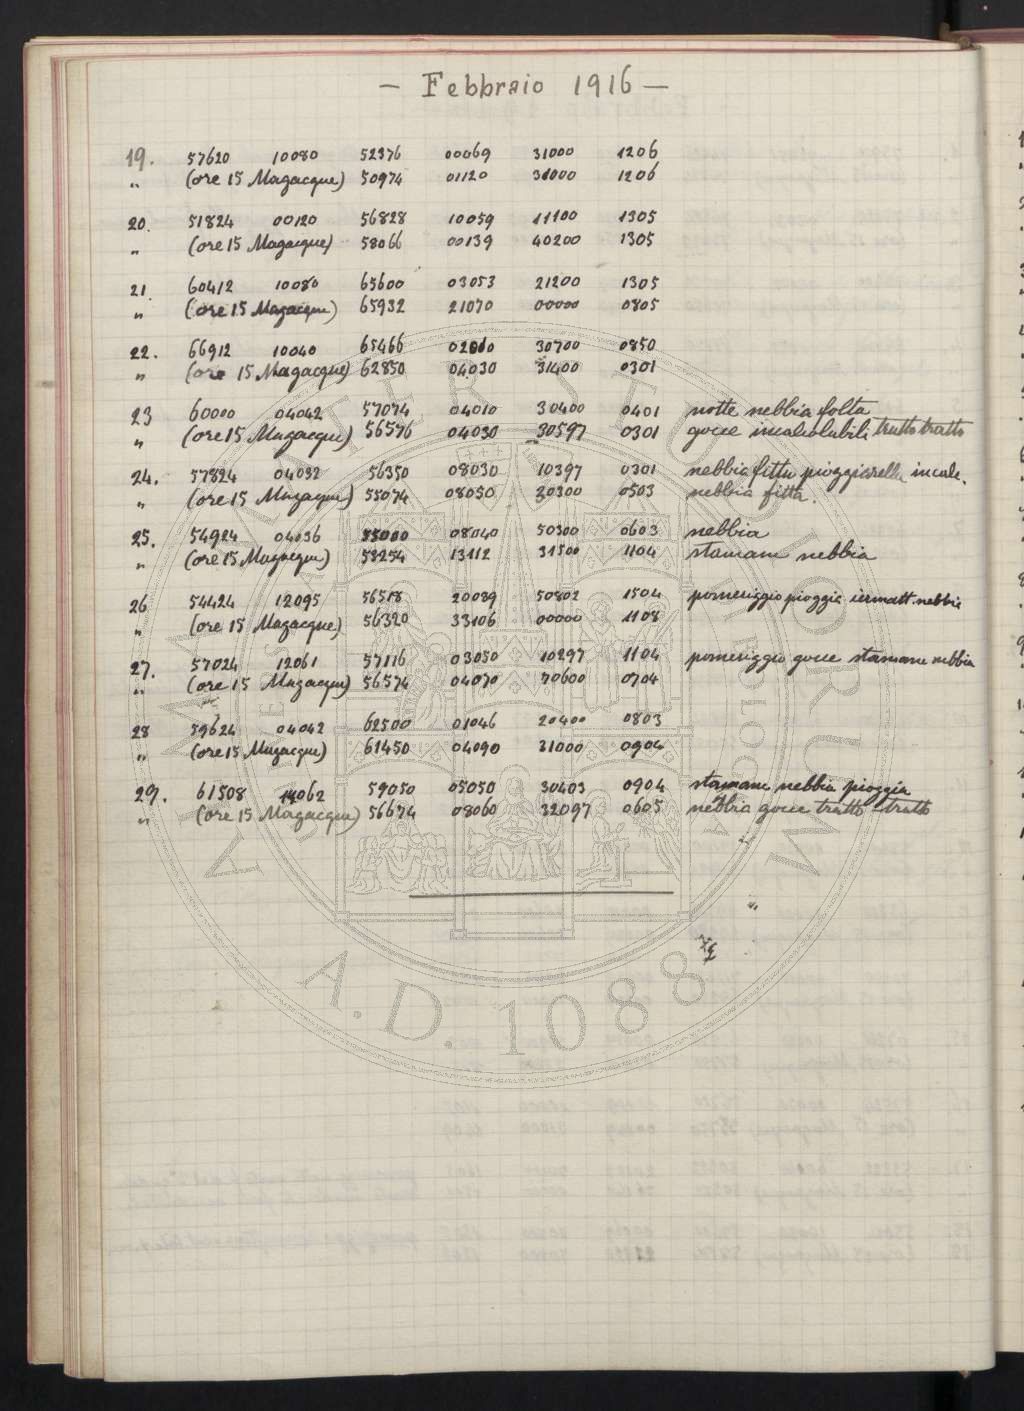 - Febbraio 1916 -
19. 57620 10080 52376 00069 31000 1206
" (ore 15 Magacque) 50974 01120 31000 1206
20. 51824 00120 56828 10059 11100 1305
" (ore 15 Magacque) 58066 00139 40200 1305
21. 60412 10080 65600 03053 21200 1305
" (ore 15 Magacque) 65932 21070 00000 0805
22. 66912 10040 65466 02060 30700 0850
" (ore 15 Magacque) 62850 04030 31400 0301
23 60000 04042 57074 04010 30400 0401 notte nebbia folta
" (ore 15 Magacque) 56576 04030 30597 0301 gocce incalcolabili tratto tratto
24. 57824 04032 56350 08030 10397 0301 nebbia fitta pioggiarella incalc.
" (ore 15 Magacque) 55074 08050 20300 0503 nebbia fitta.
25. 54924 04036 55000 08040 50300 0603 nebbia
" (ore 15 Magacque) 58254 13112 31500 1104 stamane nebbia
26 54424 12095 56518 20089 50802 1504 pomeriggio pioggia iermatt. nebbia
" (ore 15 Magacque) 56320 33106 00000 1108
27. 57024 12061 57116 03050 10297 1104 pomeriggio gocce stamane nebbia
" (ore 15 Magacque) 56574 04070 70600 0704
28 59624 04042 62500 01046 20400 0803
" (ore 15 Magacque) 61450 04090 31000 0904
29. 61508 14062 59050 05050 30403 0904 stamane nebbia pioggia
" (ore 15 Magacque) 56674 08060 32097 0605 nebbia gocce tratto tratto
ALMA MATER STUDIORUM
A.D. 1088